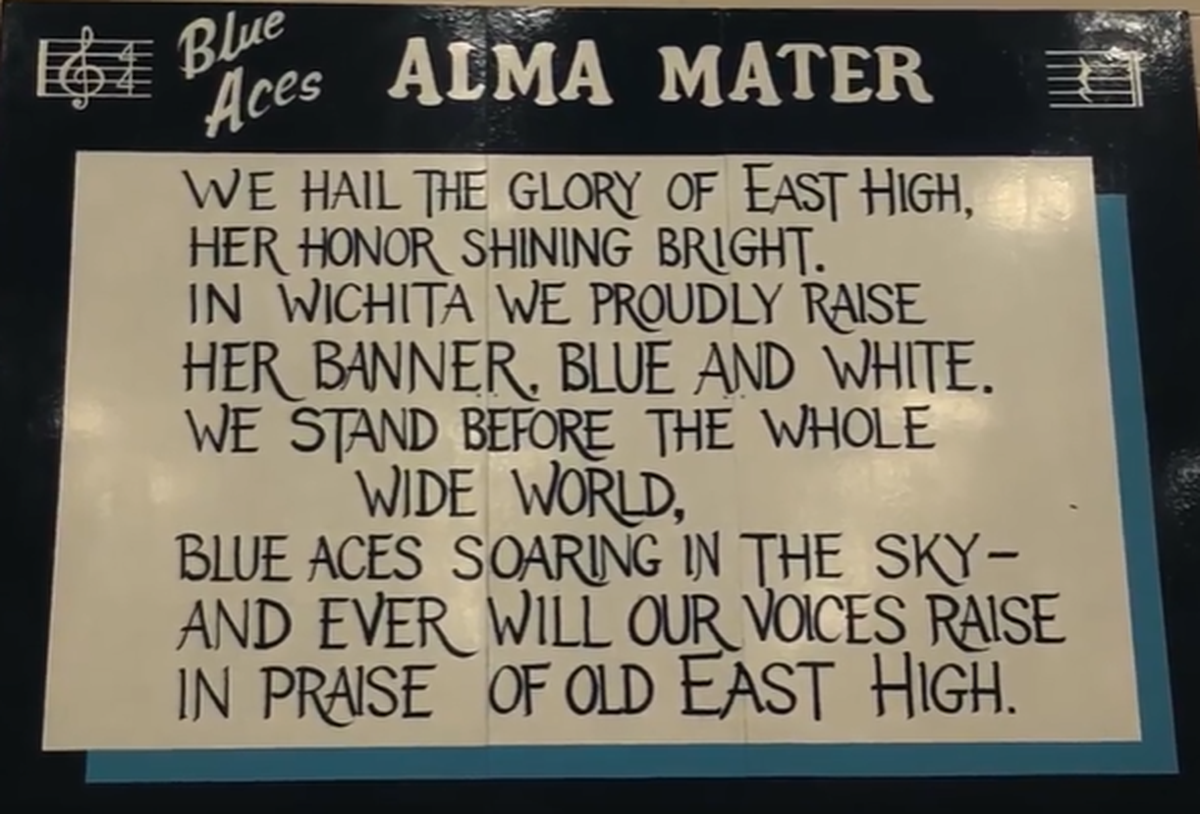 Blue
Aces
ALMA MATER
WE HAIL THE GLORY OF EAST HIGH,
HER HONOR SHINING BRIGHT.
IN WICHITA WE PROUDLY RAISE
HER BANNER, BLUE AND WHITE.
WE STAND BEFORE THE WHOLE
WIDE WORLD,
BLUE ACES SOARING IN THE SKY-
AND EVER WILL OUR VOICES RAISE
IN PRAISE OF OLD EAST HIGH.